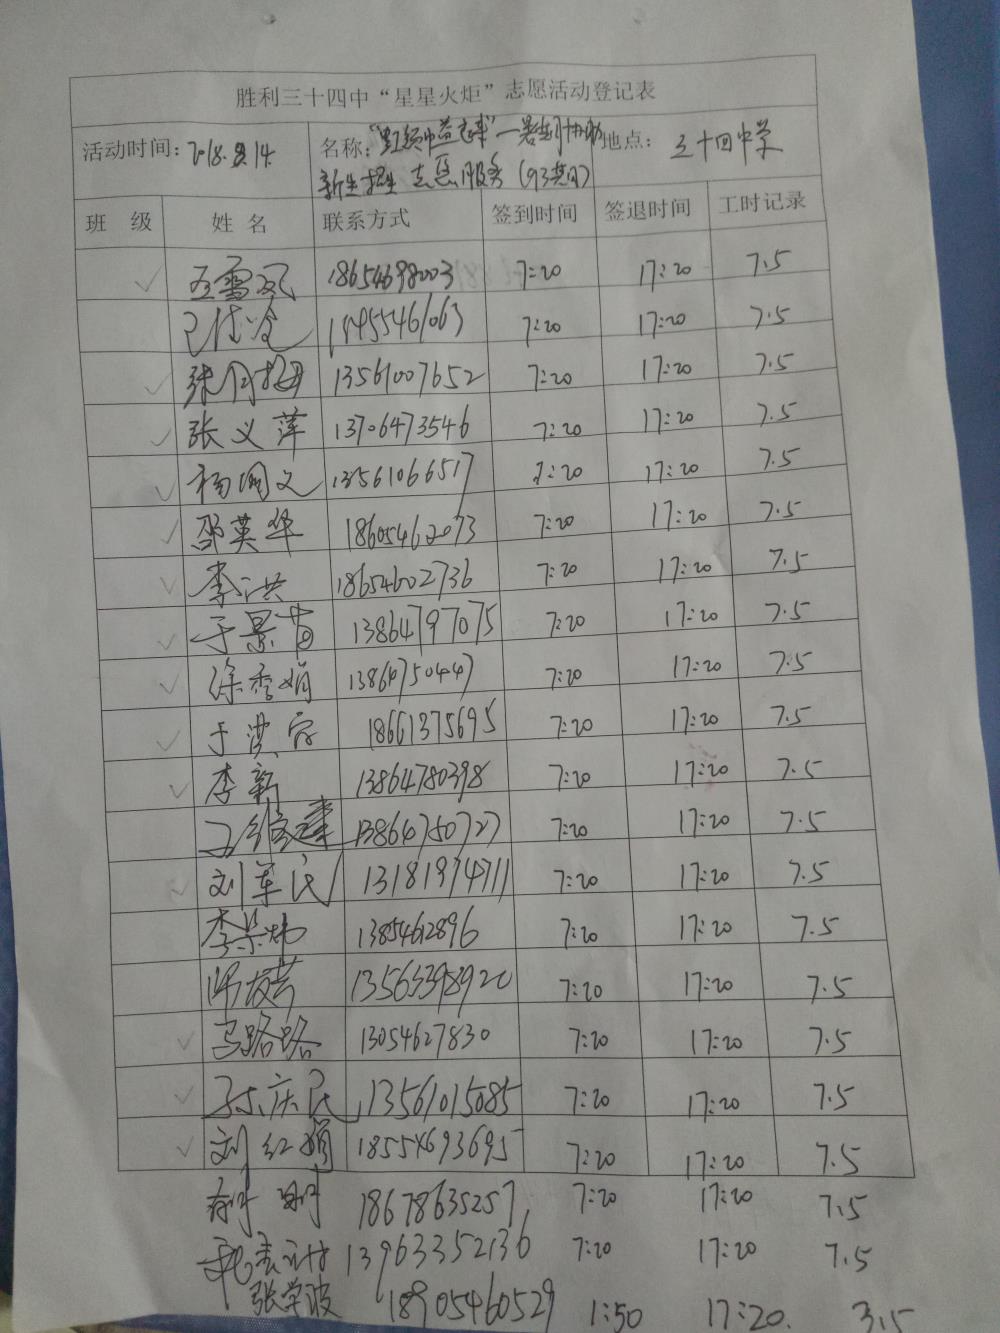 胜利三十四中“星星火炬”志愿活动登记表
活动时间：2018.8.14 名称：“红领巾益起来”—暑期协助 地点：三十四中学
新生招生 志愿服务
班 级 姓 名 联系方式 签到时间 签退时间 工时记录
18654698003 7:20 17:20 7.5
7:20 17:20 7.5
张月梅 13561007652 7:20 17:20 7.5
张义萍 13706473546 7:20 17:20 7.5
杨国文 13561066517 7:20 17:20 7.5
邵英华 18605462073 7:20 17:20 7.5
李洪 18654602736 7:20 17:20 7.5
于景苗 13864797075 7:20 17:20 7.5
徐秀娟 13864750447 7:20 17:20 7.5
于洪 18661375695 7:20 17:20 7.5
李新 13864780398 7:20 17:20 7.5
13864750727 7:20 17:20 7.5
刘军民 13181974711 7:20 17:20 7.5
李 7:20 17:20 7.5
13563398920 7:20 17:20 7.5
马路路 13054627830 7:20 17:20 7.5
孙庆民 13561015085 7:20 17:20 7.5
刘红娟 18554693695 7:20 17:20 7.5
18678635257 7:20 17:20 7.5
13963352136 7:20 17:20 7.5
张学波 18905460529 1:50 17:20. 3.5